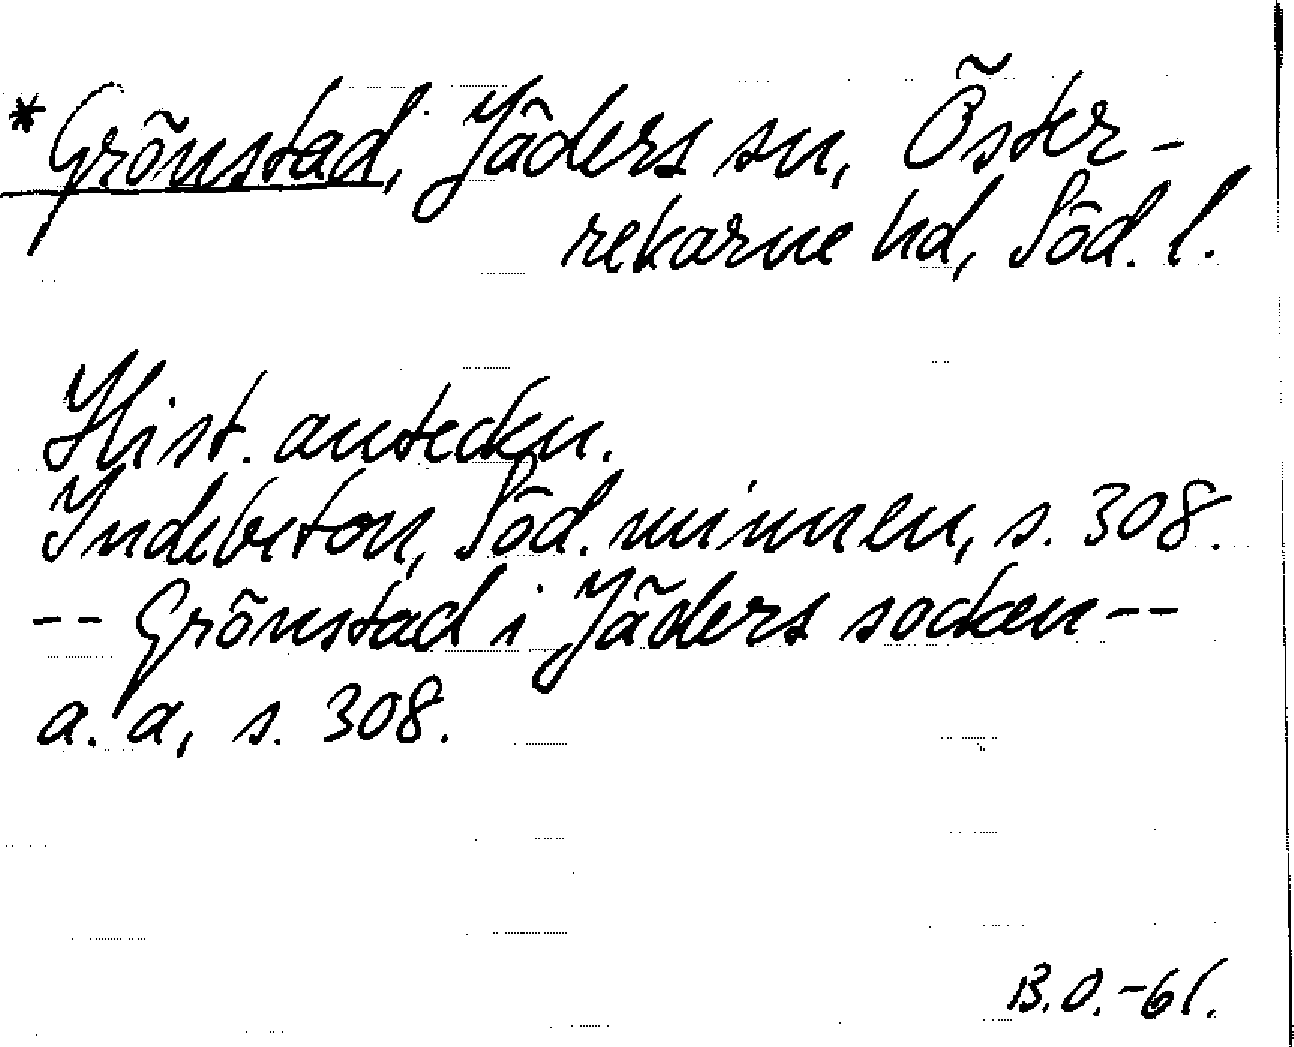 *Grönstad, Jäders sn, Öster-
rekarne hd, Söd. l.
Hist. anteckn.
Indebetou, Söd. minnen, s. 308.
-- Grönstad i Jäders socken --
a. a, s. 308.
B.O.-61.